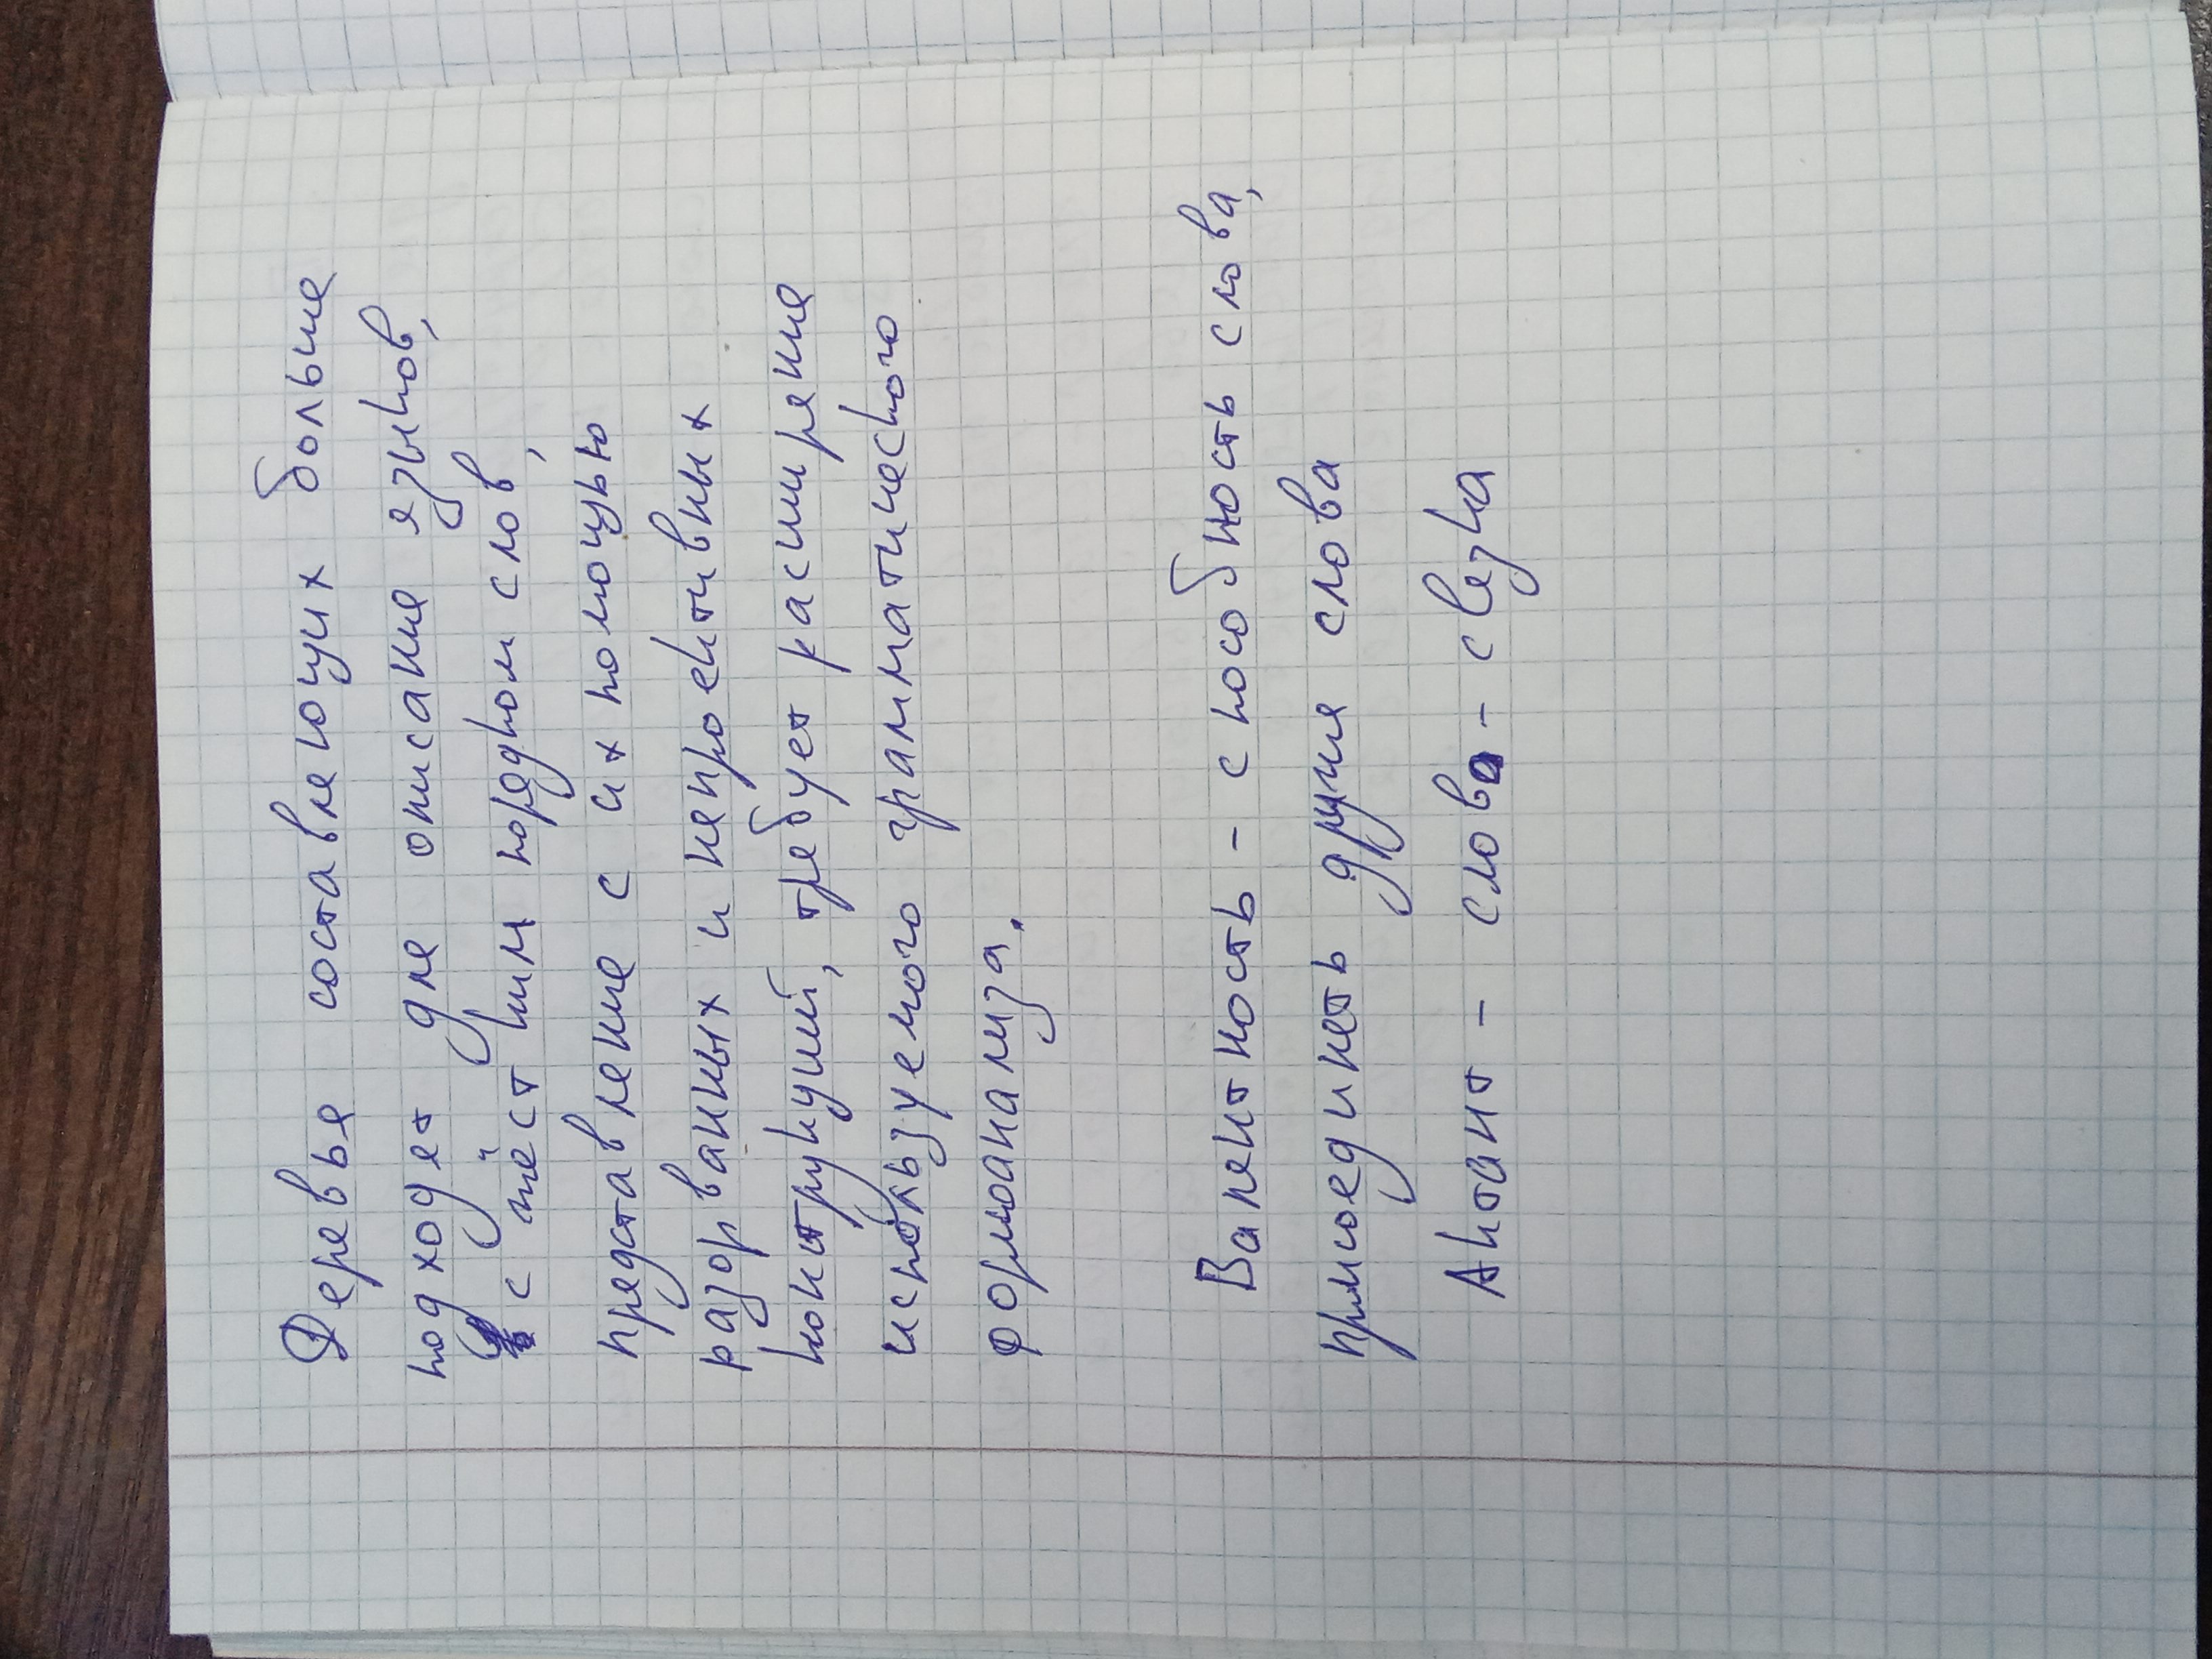 Деревья составляющих больше
подходят для описания языков,
с жёстким порядком слов,
представление с их помощью
разорванных и непроективных
конструкций, требует расширения
используемого грамматического
формоанализа.
Валентность - способность слова,
присоединять другие слова
Актант - слово - связка